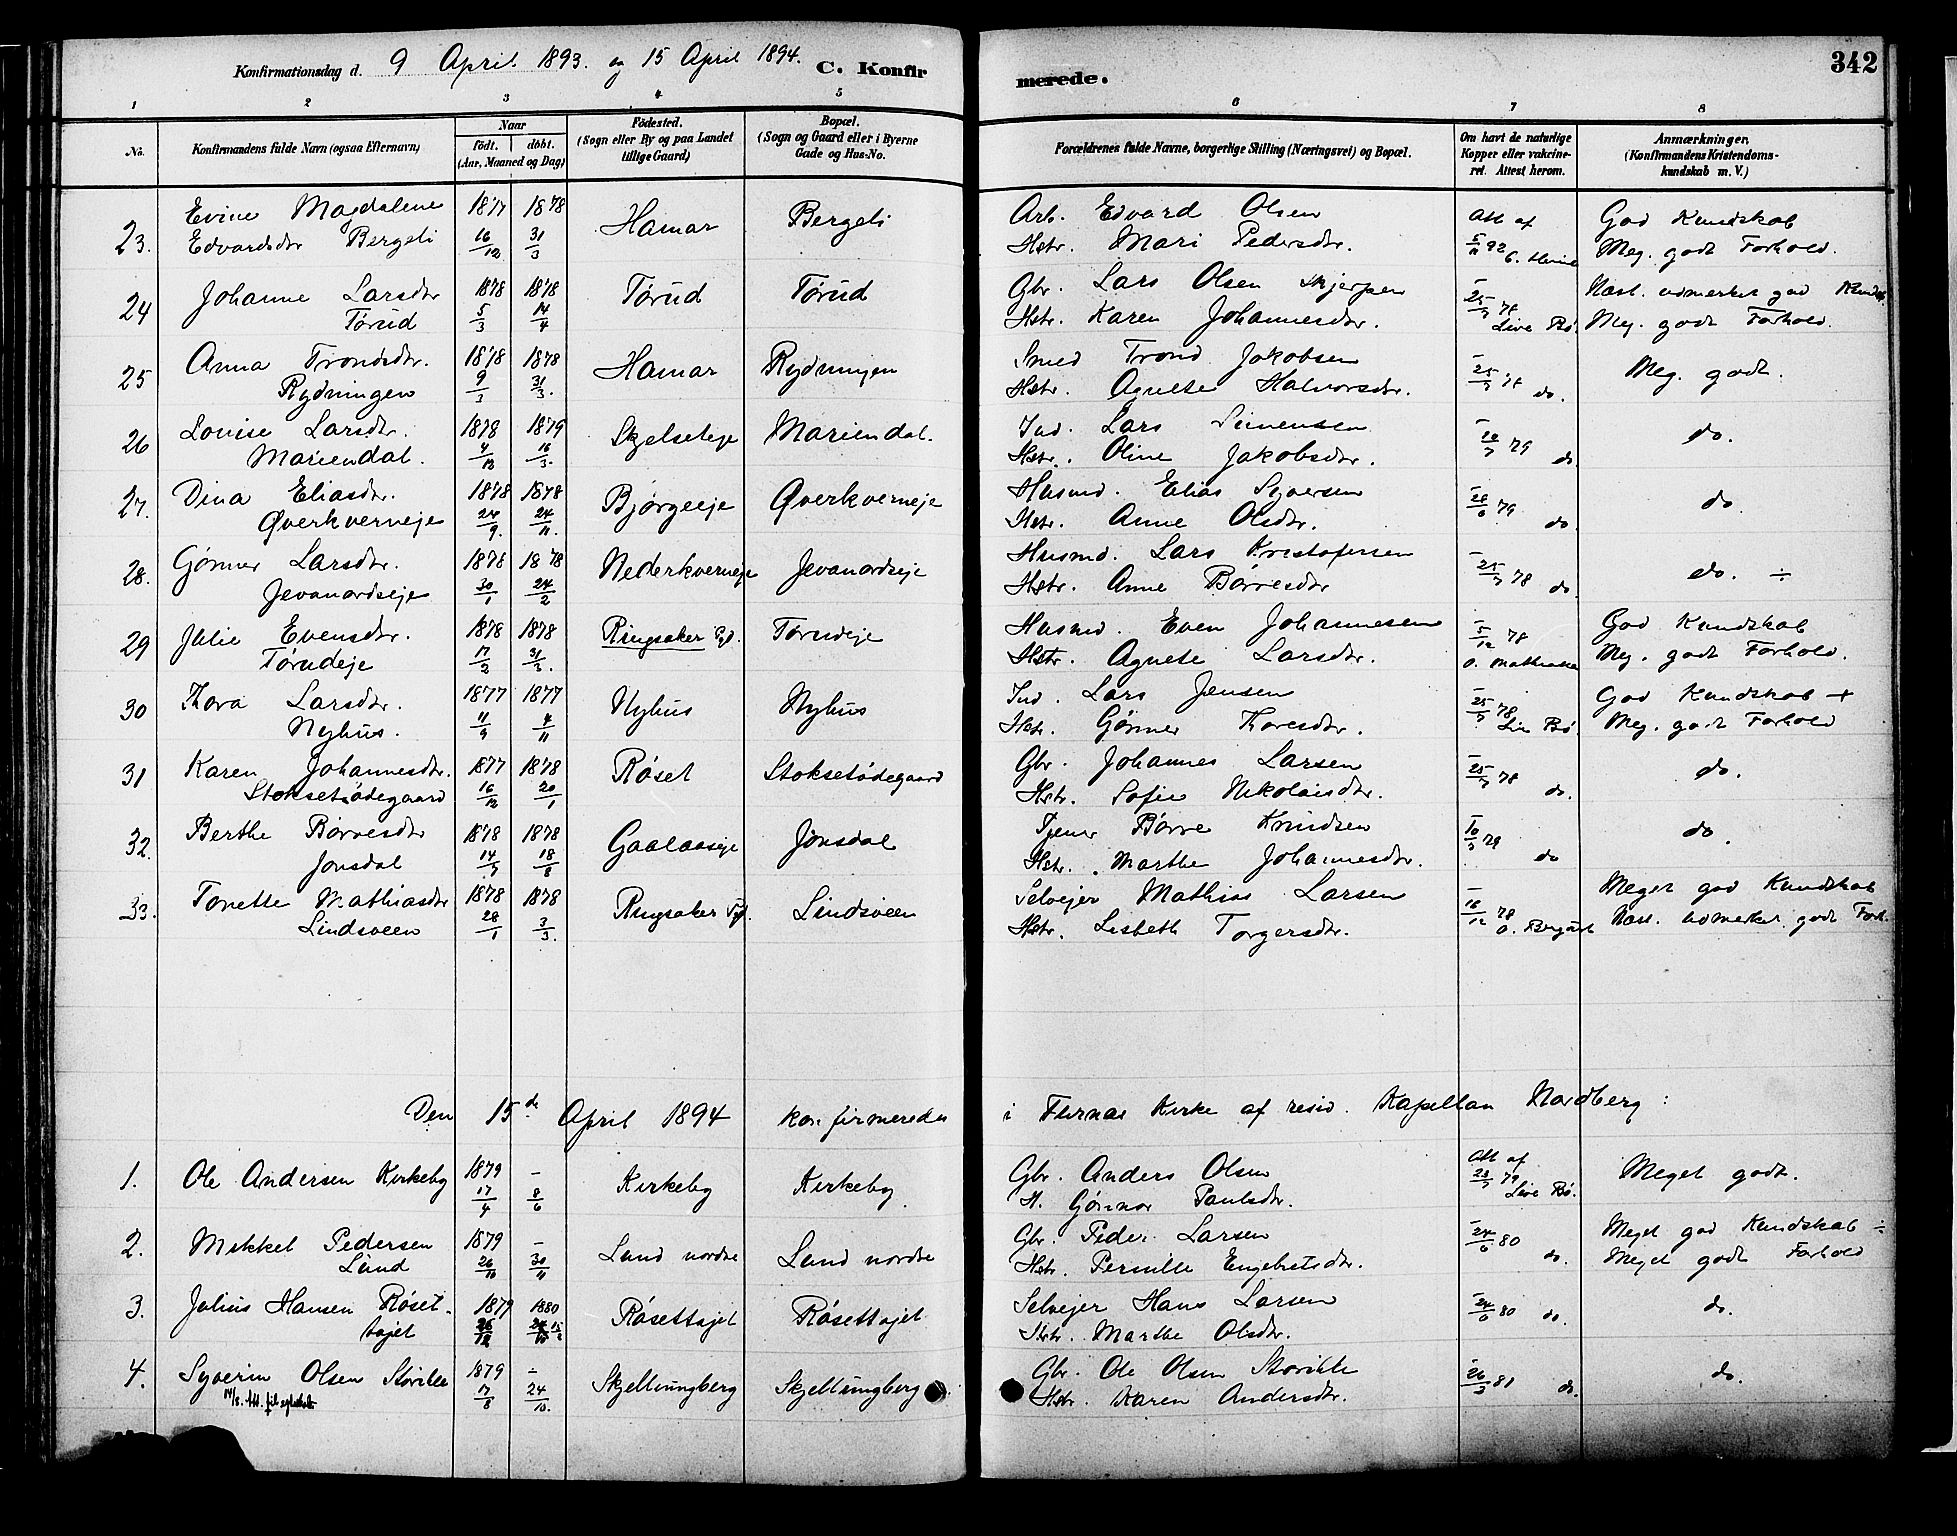 342
Konfirmationsdag d. 9 April 1893 og 15 April 1894. C. Konfirmerede.
1 2 3 4 5 6 7 8
No. Konfirmandens fulde Navn (ogsaa Efternavn) Naar født. døbt. (Aar, Maaned og Dag) Fødested. (Sogn eller By og paa Landet tillige Gaard) Bopæl. (Sogn og Gaard eller i Byerne Gade og Hus-No. Forældrenes fulde Navne, borgerlige Stilling (Næringsvei) og Bopæl. Om havt de naturlige Kopper eller vakcineret. Attest herom. Anmærkninger. (Konfirmandens Kristendomskundskab m. V.)
23. Evine Magdalene 1877 1878 Hamar Bergeli Arb. Edvard Olsen Att af God Kundskab
Edvardsdtr Bergeli 16/12 31/3 Hstr. Mari Pedersdtr. 5/11 92 Meg. godt Forhold.
24 Johanne Larsdtr 1878 1878 Tørud Tørud Gbr. Lars Olsen Skjerpen Næst. udmerket god Kundsk
Tørud 5/3 14/4 Hstr. Karen Johannesdtr. 25/7 78 Live Bø. Meg. godt Forhold.
25 Anna Trondsdtr. 1878 1878 Hamar Rydningen Smed Trond Jakobsen Meg. godt.
Rydningen 9/3 31/3. Hstr. Agnete Halvorsdtr. 25/7 78 do.
26 Lovise Larsdtr. 1878 1879 Skjelseteje Mariendal. Ind. Lars Simensen do.
Mariendal. 4/12 16/3. Hstr. Oline Jakobsdtr. 79 do.
27. Dina Eliasdtr. 1878 1878 Bjørgeeje Øverkverneje Husmd. Elias Syversen do.
Øverkverneje 24/9. 24/11. Hstr. Anne Olsdtr. 79 do
28. Gønner Larsdtr. 1878 1878 Nederkverneje Jevanordseje Husmd. Lars Kristofersen do. ÷
Jevanordseje 30/1 24/2 Hstr. Anne Børresdtr 25/7 78 do.
29 Julie Evensdtr. 1878 1878 Ringsaker Pgd. Tørudeje Husmd. Even Johannesen God Kundskab
Tørudeje 17/2 31/3. Hstr. Agnete Larsdtr. 5/12 78 Meg. godt Forhold.
30 Thora Larsdtr. 1877 1877 Nyhus Nyhus Ind. Lars Jensen God Kundskab +
Nyhus. 11/9 4/11 Hstr. Gønner Thoresdtr. 25/7 78 Live Bø. Meg. godt Forhold
31 Karen Johannesdtr. 1877 1878 Røset Stoksetødegaard Gbr. Johannes Larsen do.
Stoksetødegaard 16/12 20/1 Hstr. Sofie Nikolaisdtr. 25/7 78 do.
32. Berthe Børresdtr 1878 1878 Gaalaaseje Jønsdal Tjener Børre Knudsen do.
Jonsdal 14/7 18/8 Hstr. Marthe Johannesdtr. 10/7 79 do
33. Tonette Mathiasdtr 1878 1878 Ringsaker Lindsveen Selvejer Mathias Larsen Meget god Kundskab
Lindsveen 28/1 3/3. Hstr. Lisbeth Torgersdtr. 16/12 78 Næst. udmerket godt Forh.
Den 15de April 1894 konfirmeredes i Furnæs Kirke af resid. Kapellan Nordberg:
1. Ole Andersen Kirkeby 1879 – Kirkeby Kirkeby Gbr. Anders Olsen Att af Meget godt.
17/4 8/6 H. Gønnor Paulsdtr. 79 Live Bø.
2. Mikkel Pedersen 1879 – Lund nordre Lund nordre Gbr. Peder Larsen Meget god Kundskab ÷
Lund 26/10 30/11 Hstr. Pernille Engebretsdtr. 24/6 80 do. Meget godt Forhold
3. Julius Hansen Røset- 1879 1880 Røsettajet Røsettajet Selvejer Hans Larsen do.
tajet 26/12 15/2 Hstr. Marthe Olsdtr. 24/6 80 do.
4. Syverin Olsen Storihle 1879 – Skjellungberg Skjellungberg Gbr. Ole Olsen Storihle do.
17/8 24/10. Hstr. Karen Andersdtr. 26/3 81 do.